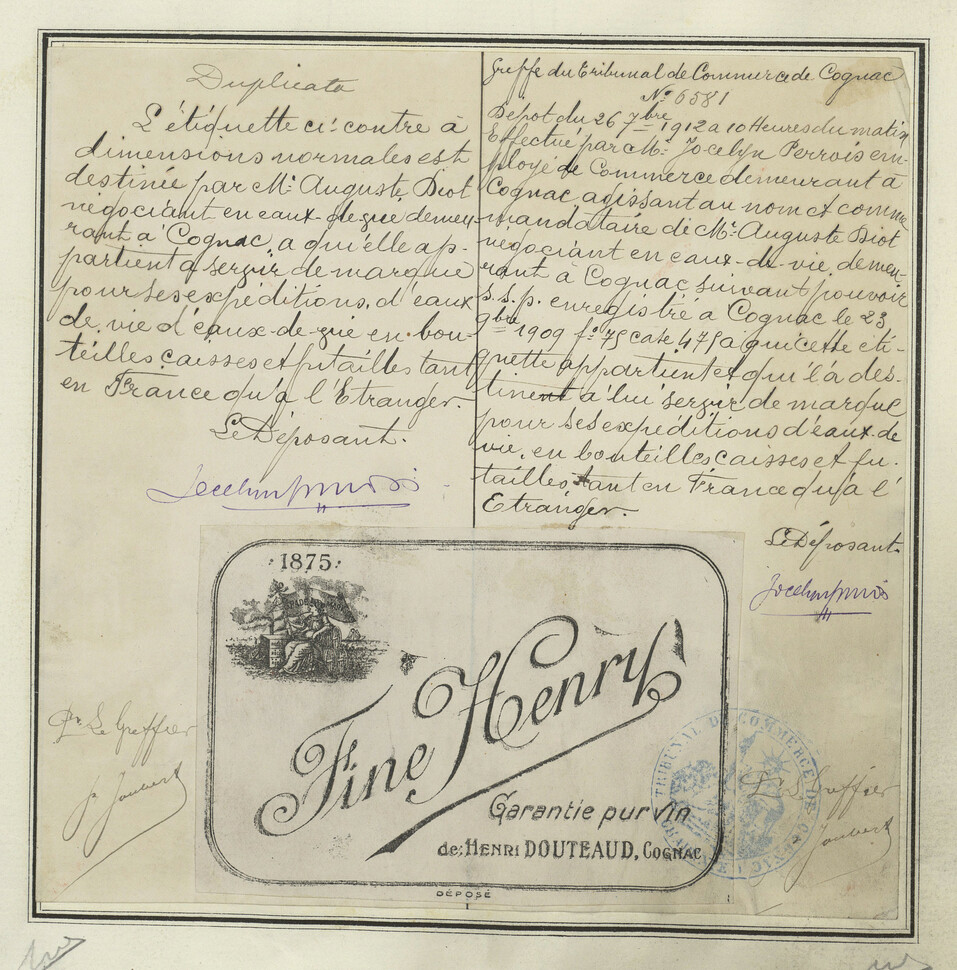 Duplicata
L'étiquette ci-contre à
dimensions normales est
destinée par Mr Auguste Biot
négociant en eaux-de-vie demeu-
rant à Cognac, a qu'elle ap-
partient a servir de marque
pour ses expéditions, d'eaux
de vie d'eaux-de-vie en bou-
teilles caisses et futailles tant
en France qu'a l'Etranger.
Le Déposant.
Greffe du Tribunal de Commerce de Cognac
No 6581
Dépot du 26 7bre 1912 a 10 Heures du matin
Effectué par Mr Jocelyn Perrois em-
ployé de Commerce demeurant à
Cognac agissant au nom et comme
mandataire de Mr Auguste Biot
négociant en eaux-de-vie, demeu-
rant à Cognac suivant pouvoir
s.s.p. enregistré à Cognac le 23
9bre 1909 fo 75 case 475 a qui cette éti-
quette appartient et qu'il a des-
tinent à lui servir de marque
pour ses expéditions d'eaux-de
vie, en bouteilles caisses et fu-
tailles tant en France qu'a l'
Etranger.
Le Déposant
1875
Fine Henry
Garantie pur vin
de Henri DOUTEAUD, COGNAC
DÉPOSÉ
Pr Le Greffier
Joubert
TRIBUNAL DE COMMERCE DE COGNAC
Pr Le Greffier
Joubert